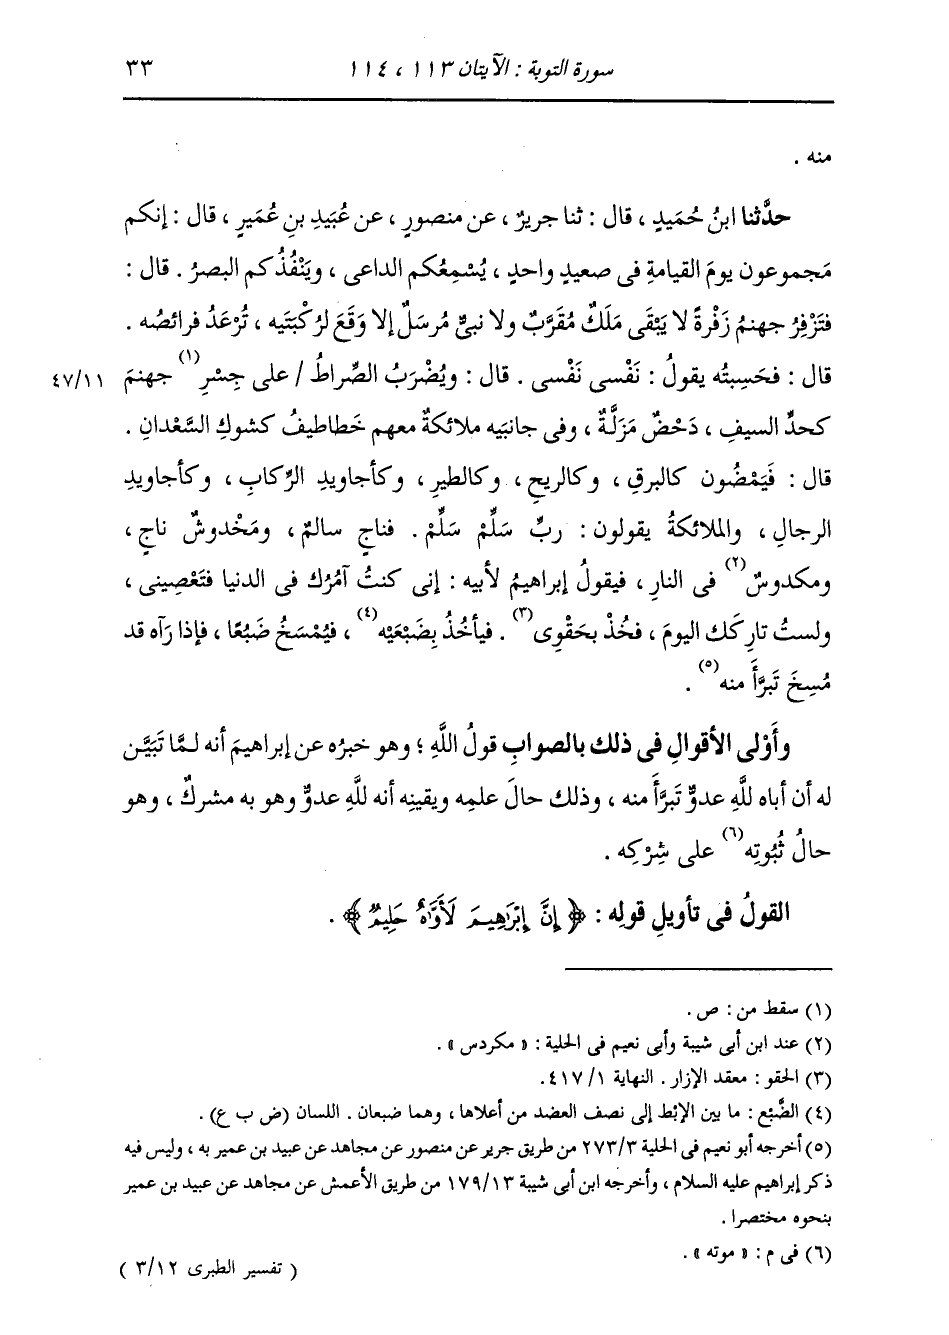 سورة التوبة : الآيتان ١١٣ ، ١١٤ ٣٣
منه .
حدَّثنا ابنُ حُميدٍ ، قال : ثنا جريرٌ ، عن منصورٍ ، عن عُبَيدِ بنِ عُمَيرٍ ، قال : إنكم
مَجموعون يومَ القيامةِ فى صعيدٍ واحدٍ ، يُسْمِعُكم الداعى ، ويَنْفُذُكم البصرُ . قال :
فتَزْفِرُ جهنمُ زَفْرةً لا يَبْقى مَلَكٌ مُقَرَّبٌ ولا نبىٌّ مُرسَلٌ إلا وَقَع لرُكْبَتَيه ، تُرْعَدُ فرائصُه .
قال : فحَسِبتُه يقولُ : نَفْسى نَفْسى . قال : ويُضْرَبُ الصِّراطُ / على جِسْرِ(١) جهنمَ ٤٧/١١
كحدِّ السيفِ ، دَحْضٌ مَزَلَّةٌ ، وفى جانبَيه ملائكةٌ معهم خَطاطيفُ كشوكِ السَّعْدانِ .
قال : فيَمْضُون كالبرقِ ، وكالريحِ ، وكالطيرِ ، وكأجاويدِ الرِّكابِ ، وكأجاويدِ
الرجالِ ، والملائكةُ يقولون : ربِّ سَلِّمْ سَلِّمْ . فناجٍ سالمٌ ، ومَخْدوشٌ ناجٍ ،
ومكدوسٌ(٢) فى النارِ ، فيقولُ إبراهيمُ لأبيه : إنى كنتُ آمُرُك فى الدنيا فتَعْصِينى ،
ولستُ تارِكَك اليومَ ، فخُذْ بحَقْوِى(٣) . فيأخُذُ بِضَبْعَيْه(٤) ، فيُمْسَخُ ضَبُعًا ، فإذا رَآه قد
مُسِخَ تَبرَّأَ منه(٥) .
وأَوْلى الأقوالِ فى ذلك بالصوابِ قولُ اللَّهِ ؛ وهو خبرُه عن إبراهيمَ أنه لمَّا تَبَيَّن
له أن أباه للَّهِ عدوٌّ تَبرَّأَ منه ، وذلك حالَ علمِه ويقينِه أنه للَّهِ عدوٌّ وهو به مشركٌ ، وهو
حالُ ثُبُوتِه(٦) على شِرْكِه .
القولُ فى تأويلِ قولِه : ﴿ إِنَّ إِبْرَٰهِيمَ لَأَوَّٰهٌ حَلِيمٌ ﴾ .
(١) سقط من : ص .
(٢) عند ابن أبى شيبة وأبى نعيم فى الحلية : « مكردس » .
(٣) الحقو : معقد الإزار . النهاية ٤١٧/١.
(٤) الضَّبْع : ما بين الإبْط إلى نصف العضد من أعلاها ، وهما ضبعان . اللسان (ض ب ع) .
(٥) أخرجه أبو نعيم فى الحلية ٢٧٣/٣ من طريق جرير عن منصور عن مجاهد عن عبيد بن عمير به ، وليس فيه
ذكر إبراهيم عليه السلام ، وأخرجه ابن أبى شيبة ١٧٩/١٣ من طريق الأعمش عن مجاهد عن عبيد بن عمير
بنحوه مختصرا .
(٦) فى م : « موته » .
( تفسير الطبرى ٣/١٢ )